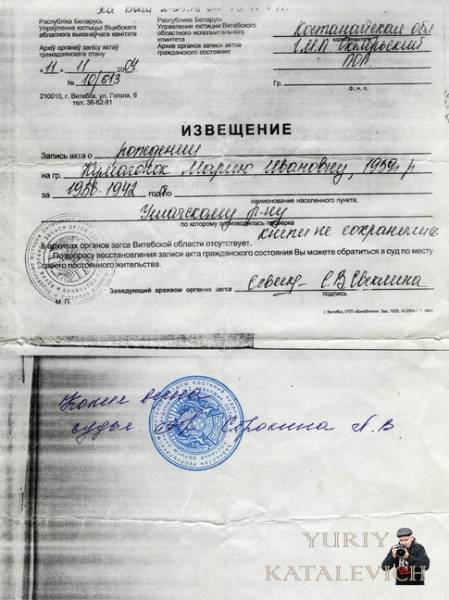 на Ваш
Рэспубліка Беларусь
Управление юстыции Віцебского
абласнога выканаўчага камітэта
Архіў органаў запісу актаў
грамадзянскага стану
"11" 11 2004
№ 10/613
210010, г. Витебск, ул. Гоголя, 6
тел. 36-62-81
Республика Беларусь
Управление юстиции Витебского
областного исполнительного
комитета
Архив органов записи актов
гражданского состояния
Костанайская обл
Гр.
ф., и., о.
ИЗВЕЩЕНИЕ
Запись акта о рождении
на гр. Марию Ивановну, 1939 г р
за 1938-1942 год
наименование населенного пункта,
Ушачскому р-ну
по которому производилась проверка
книги не сохранились
в архивах органов загса Витебской области отсутствует.
По вопросу восстановления записи акта гражданского состояния Вы можете обратиться в суд по месту
своего постоянного жительства.
Заведующий архивом органов загса
С.В.
подпись
М.П.
Копия верна
судья Сорокина А.В
YURIY
KATALEVICH